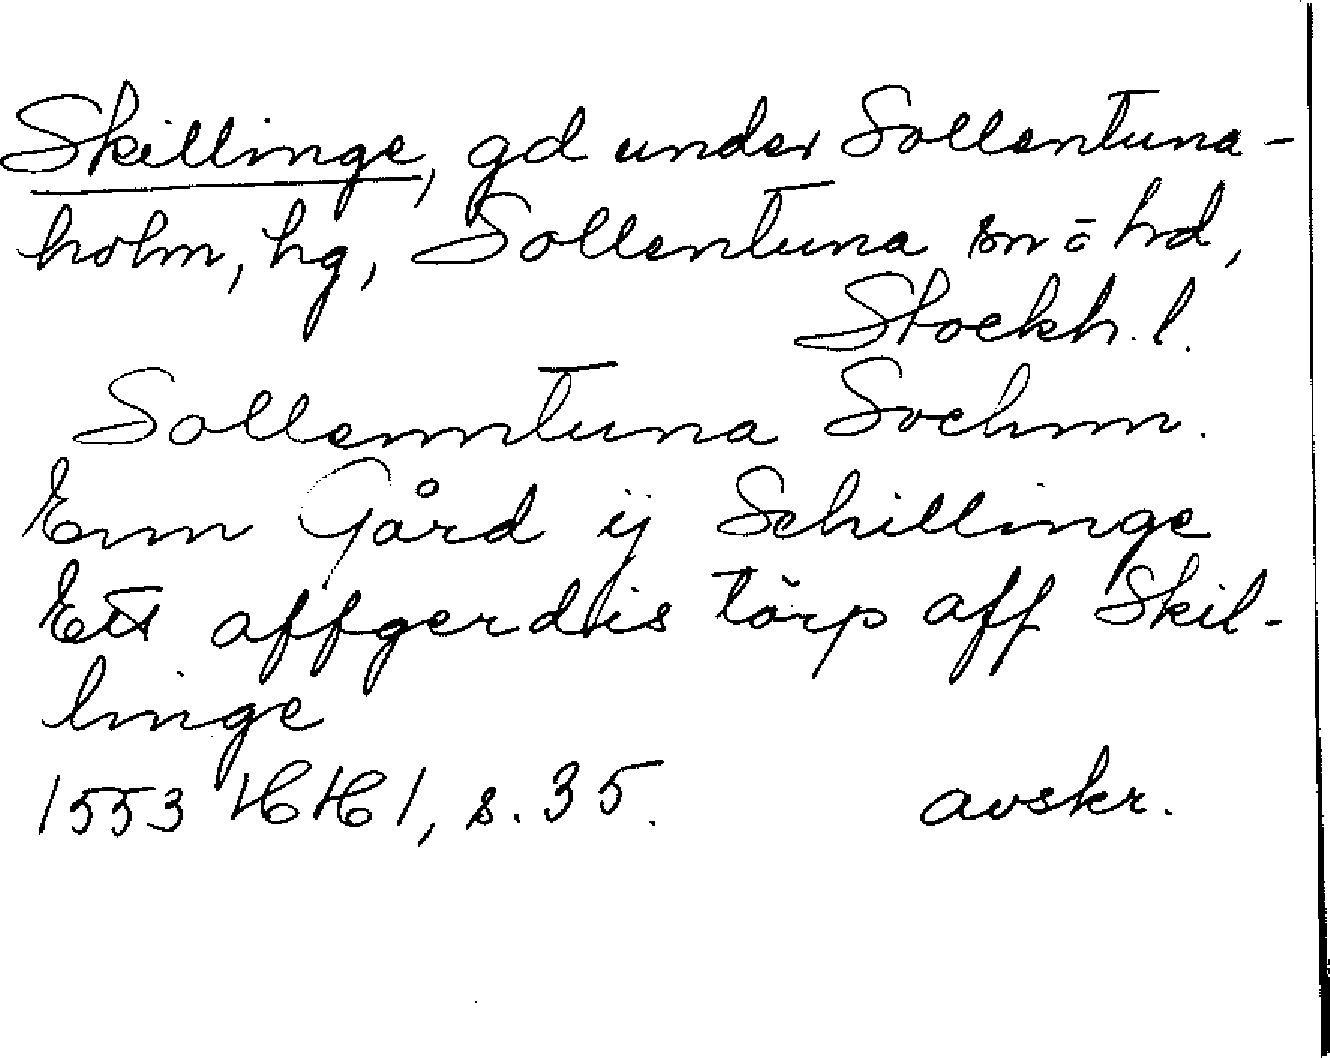 Skillinge, gd under Sollentuna-
holm, hg, Sollentuna sn o hd,
Stockh. l.
Sollenntuna Sochnn.
Enn Gård ij Schillinge
Ett affgerdis törp aff Skil-
linge
1553 HH 1, s. 35. avskr.